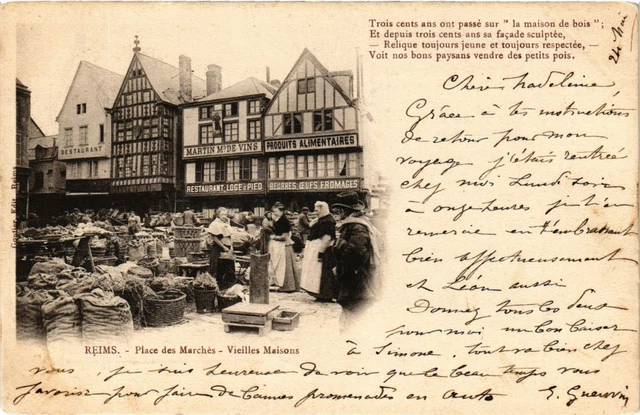 Trois cents ans ont passé sur " la maison de bois ";
Et depuis trois cents ans sa façade sculptée,
— Relique toujours jeune et toujours respectée, —
Voit nos bons paysans vendre des petits pois.
24 Mai
RESTAURANT
MARTIN Md DE VINS
PRODUITS ALIMENTAIRES
RESTAURANT LOGE A PIED
BEURRES ŒUFS FROMAGES
REIMS. - Place des Marchés - Vieilles Maisons
Chère Madeleine,
Grâce à tes instructions
de retour pour mon
voyage j'étais rentrée
chez moi Lundi soir
à onze heures je t'en
remercie en t'embrassant
bien affectueusement
et Léon aussi
Donnez tous les deux
pour moi un bon baiser
à Simone, tout va bien chez
vous, je suis heureuse de voir que le beau temps vous
favorise pour faire de bonnes promenades en auto E. Guerrin